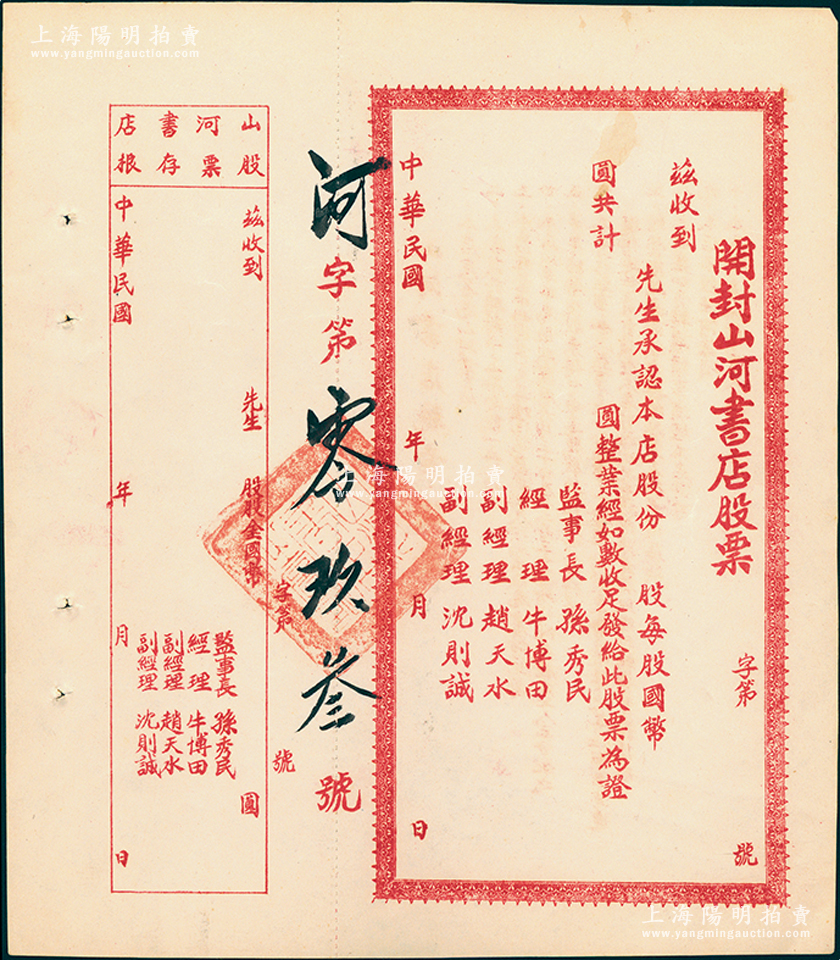 上海陽明拍賣
www.yangmingauction.com
開封山河書店股票
字第 號
茲收到
先生承認本店股份 股每股國幣
圓共計 圓整業經如數收足發給此股票為證
監事長 孫秀民
經理 牛博田
副經理 趙天水
副經理 沈則誠
中華民國 年 月 日
河字第零玖叁號
山河書店
股票存根
字第 號
茲收到 先生 股股金國幣 圓
監事長 孫秀民
經理 牛博田
副經理 趙天水
副經理 沈則誠
中華民國 年 月 日
上海陽明拍賣
www.yangmingauction.com
上海陽明拍賣
www.yangmingauction.com